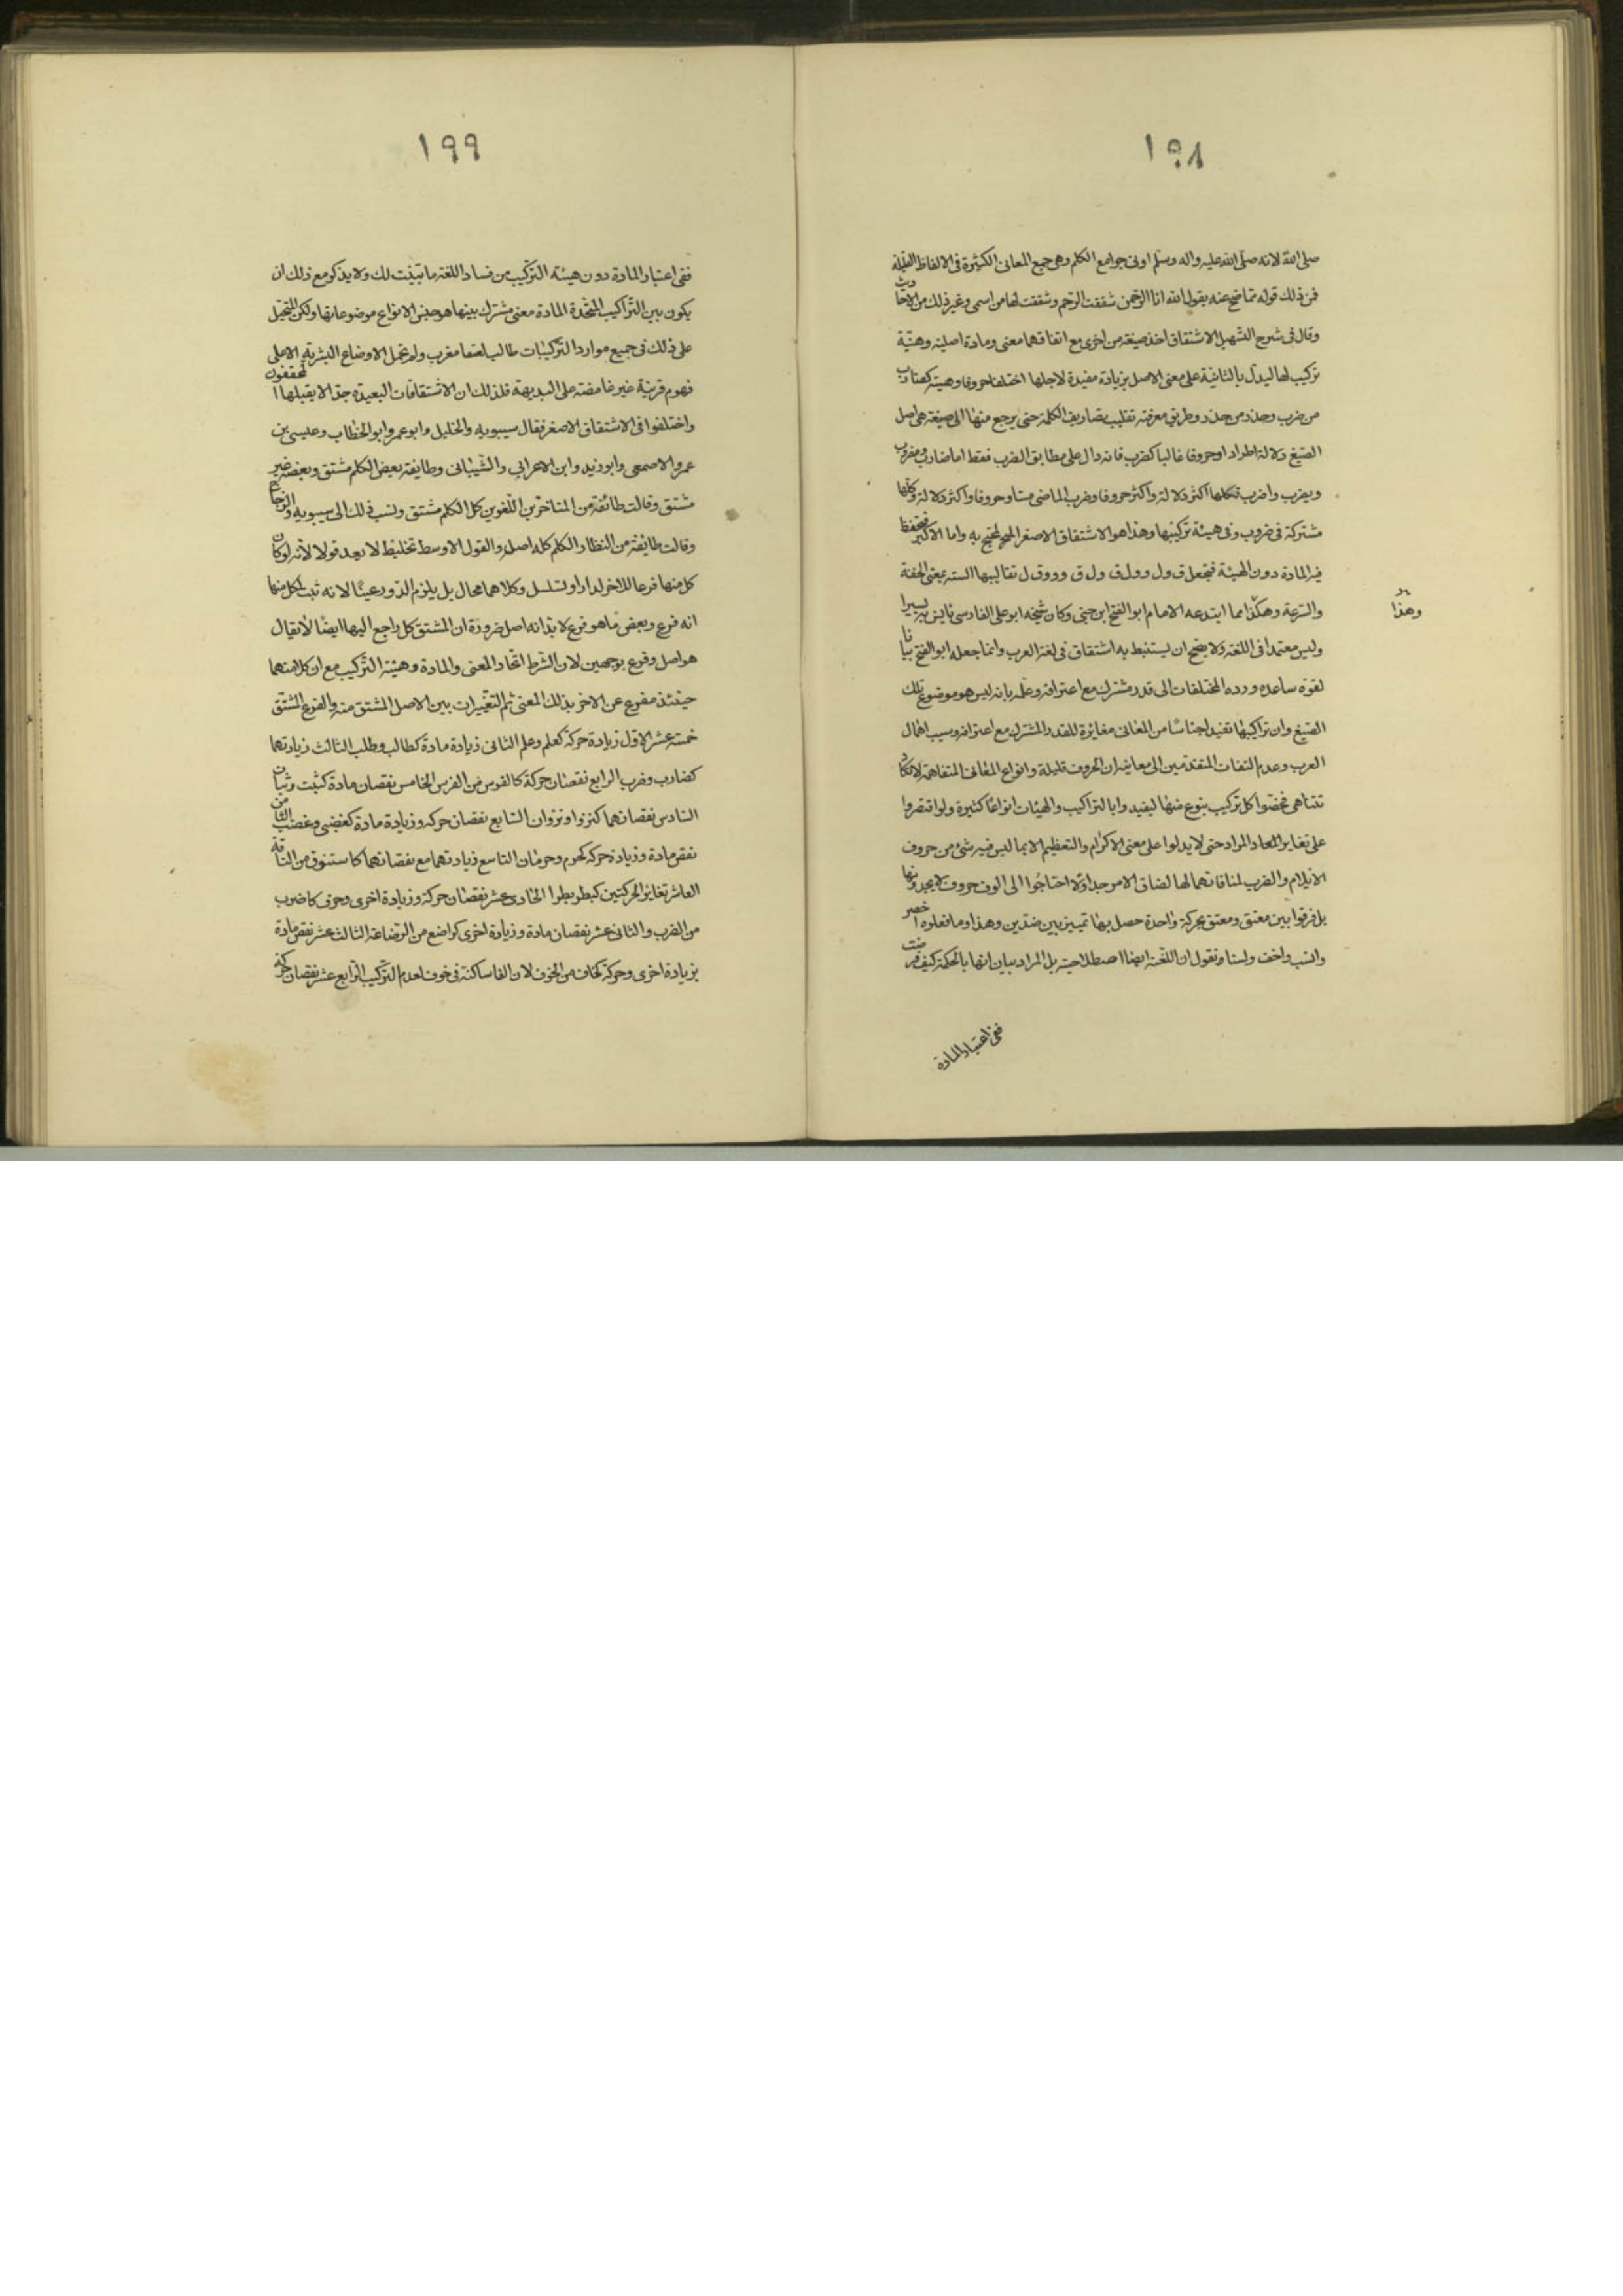 ١٩٨
صلى الله لانه صلى الله عليه واله وسلم اوتى جوامع الكلم وهى جمع المعانى الكثيرة فى الالفاظ القليلة
فمن ذلك قوله فيما صح عنه يقول الله انا الرحمن شققت الرحم وشققت لها من اسمى وغير ذلك من الاحاديث
وقال فى شرح التسهيل الاشتقاق اخذ صيغة من اخرى مع اتفاقهما معنى ومادة اصلية وهيئة
تركيب لها ليدل بالثانية على معنى الاصل بزيادة مفيدة لاجلها اختلفا حروفا وهيئة كضارب
من ضرب وحذر من حذر وطريق معرفته تقليب تصاريف الكلمة حتى يرجع منها الى صيغة هى اصل
الصيغ دلالة اطراد او حروفا غالبا كضرب فانه دال على مطابق الضرب فقط اما ضارب ومضروب
ويضرب واضرب فكلها اكثر دلالة واكثر حروفا وضرب الماضى مساو حروفا واكثر دلالة وكلها
مشتركة فى ض ر ب وفى هيئة تركيبها وهذا هو الاشتقاق الاصغر المحتج به واما الاكبر فيحفظ
فيه المادة دون الهيئة فيجعل ق ول و ول ق ول ق و ووق ل تقاليبها الستة بمعنى الخفة
والسرعة وهكذا مما ابتدعه الامام ابو الفتح ابن جنى وكان شيخه ابو على الفارسى يأنس به يسيرا
وهذا
وليس معتمدا فى اللغة ولا يصح ان يستنبط به اشتقاق فى لغة العرب وانما جعله ابو الفتح بيانا
لقوة ساعده ورده المختلفات الى قدر مشترك مع اعترافه وعلمه بانه ليس هو موضوع تلك
الصيغ وان تراكيبها تفيد اجناسا من المعانى مغايرة للقدر المشترك مع اعترافه وسبب اهمال
العرب وعدم التفات المتقدمين الى معانيه ان الحروف قليلة وانواع المعانى المتفاهمة لا تكاد
تتناهى فخصوا كل تركيب بنوع منها ليفيدوا بالتراكيب والهيئات انواعا كثيرة ولو اقتصروا
على تغاير المواد حتى لا يدلوا على معنى الاكرام والتعظيم الا بما ليس فيه شئ من حروف
الايلام والضرب لمنافاتهما لها لضاق الامر جدا ولاحتاجوا الى الوف حروف لا يجدونها
بل فرقوا بين معتق ومعتق بحركة واحدة حصل بها تمييز بين ضدين وهذا وما فعلوه اخصر
وانسب واخف ولسنا نقول ان اللغة ايضا اصطلاحية بل المراد بيان انها بالحكمة كيف فرضت
ففى اعتبار المادة
١٩٩
ففى اعتبار المادة دون هيئة التركيب من فساد اللغة ما تبينت لك ولا يذكر مع ذلك ان
يكون بين التراكيب المتحدة المادة معنى مشترك بينها هو جنس الانواع موضوعاتها ولكن التحيل
على ذلك فى جميع موارد التركيبات طالب لعنقا مغرب ولم تحمل الاوضاع البشرية الا على
فهوم قريبة غير غامضة على البديهة فلذلك ان الاشتقاقات البعيدة جدا لا يقبلها المحققون
واختلفوا فى الاشتقاق الاصغر فقال سيبويه والخليل وابو عمرو وابو الخطاب وعيسى بن
عمر والاصمعى وابو زيد وابن الاعرابى والشيبانى وطايفة بعض الكلم مشتق وبعضه غير
مشتق وقالت طائفة من المتاخرين اللغوين كل الكلم مشتق ونسب ذلك الى سيبويه والزجاج
وقالت طايفة من النظار الكلم كله اصل والقول الاوسط تخليط لا يعد قولا لانه لو كان
كل منها فرعا للاخر لدار او تسلسل وكلاهما محال بل يلزم الدور عينا لانه ثبت لكل منها
انه فرع وبعض ما هو فرع لا بد انه اصل ضرورة ان المشتق كل راجع اليها ايضا لا يقال
هو اصل وفرع بوجهين لان الشرط اتحاد المعنى والمادة وهيئة التركيب مع ان كلا منهما
حينئذ مفرع عن الاخر بذلك المعنى ثم التغييرات بين الاصل المشتق منه والفرع المشتق
خمسة عشر الاول زيادة حركة كعلم وعلم الثانى زيادة مادة كطالب وطلب الثالث زيادتهما
كضارب وضرب الرابع نقصان حركة كالفرس من الفرس الخامس نقصان مادة كثبت وثبات
السادس نقصانهما كنزوا ونزوان السابع نقصان حركه وزيادة مادة كغضبى وغضب الثامن
نقص مادة وزيادة حركه كحرم وحرمان التاسع زيادتهما مع نقصانهما كاستنوق من الناقة
العاشر تغاير الحركتين كبطر بطرا الحادى عشر نقصان حركة وزيادة اخرى وحرف كاضرب
من الضرب والثانى عشر نقصان مادة وزيادة اخرى كراضع من الرضاعة الثالث عشر نقص مادة
بزيادة اخرى وحركة كخاف من الخوف لان الفا ساكنة فى خوف لعدم التركيب الرابع عشر نقصان حركة